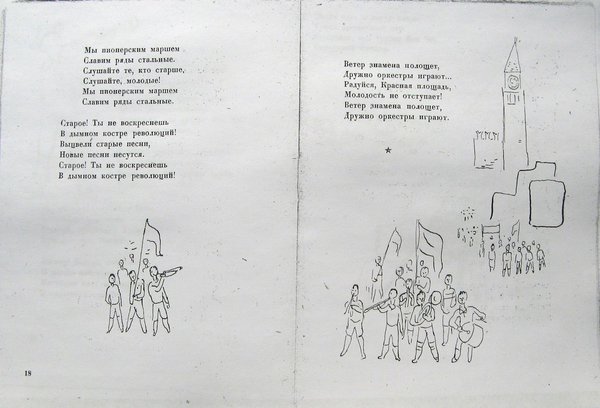 Мы пионерским маршем
Славим ряды стальные.
Слушайте те, кто старше,
Слушайте, молодые!
Мы пионерским маршем
Славим ряды стальные.
Старое! Ты не воскреснешь
В дымном костре революций!
Выцвели старые песни,
Новые песни несутся.
Старое! Ты не воскреснешь
В дымном костре революций!
18
Ветер знамена полощет,
Дружно оркестры играют...
Радуйся, Красная площадь,
Молодость не отступает!
Ветер знамена полощет,
Дружно оркестры играют.